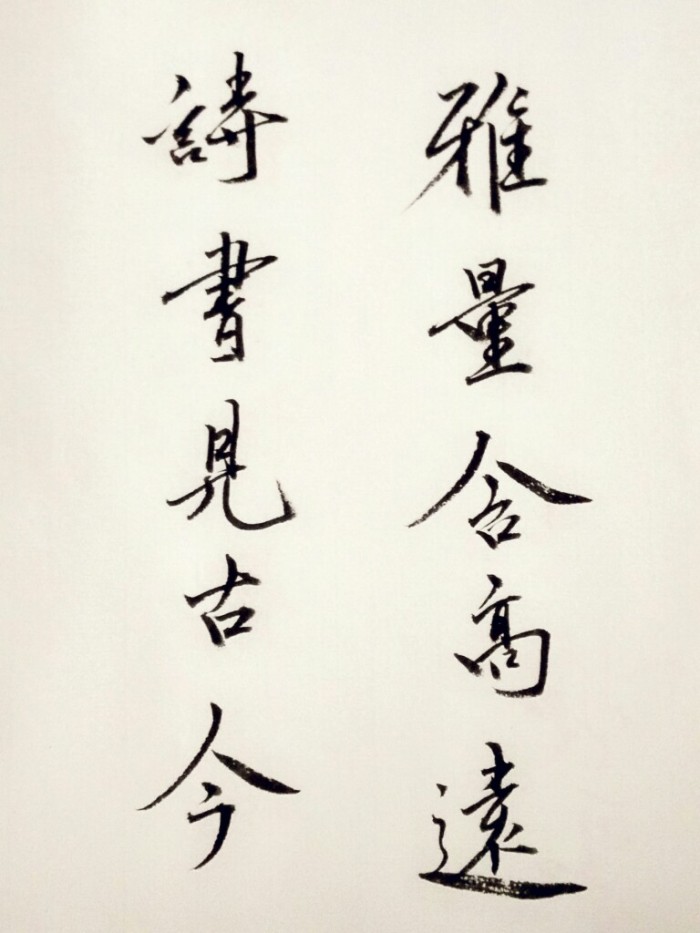 雅量含高遠
詩書見古今